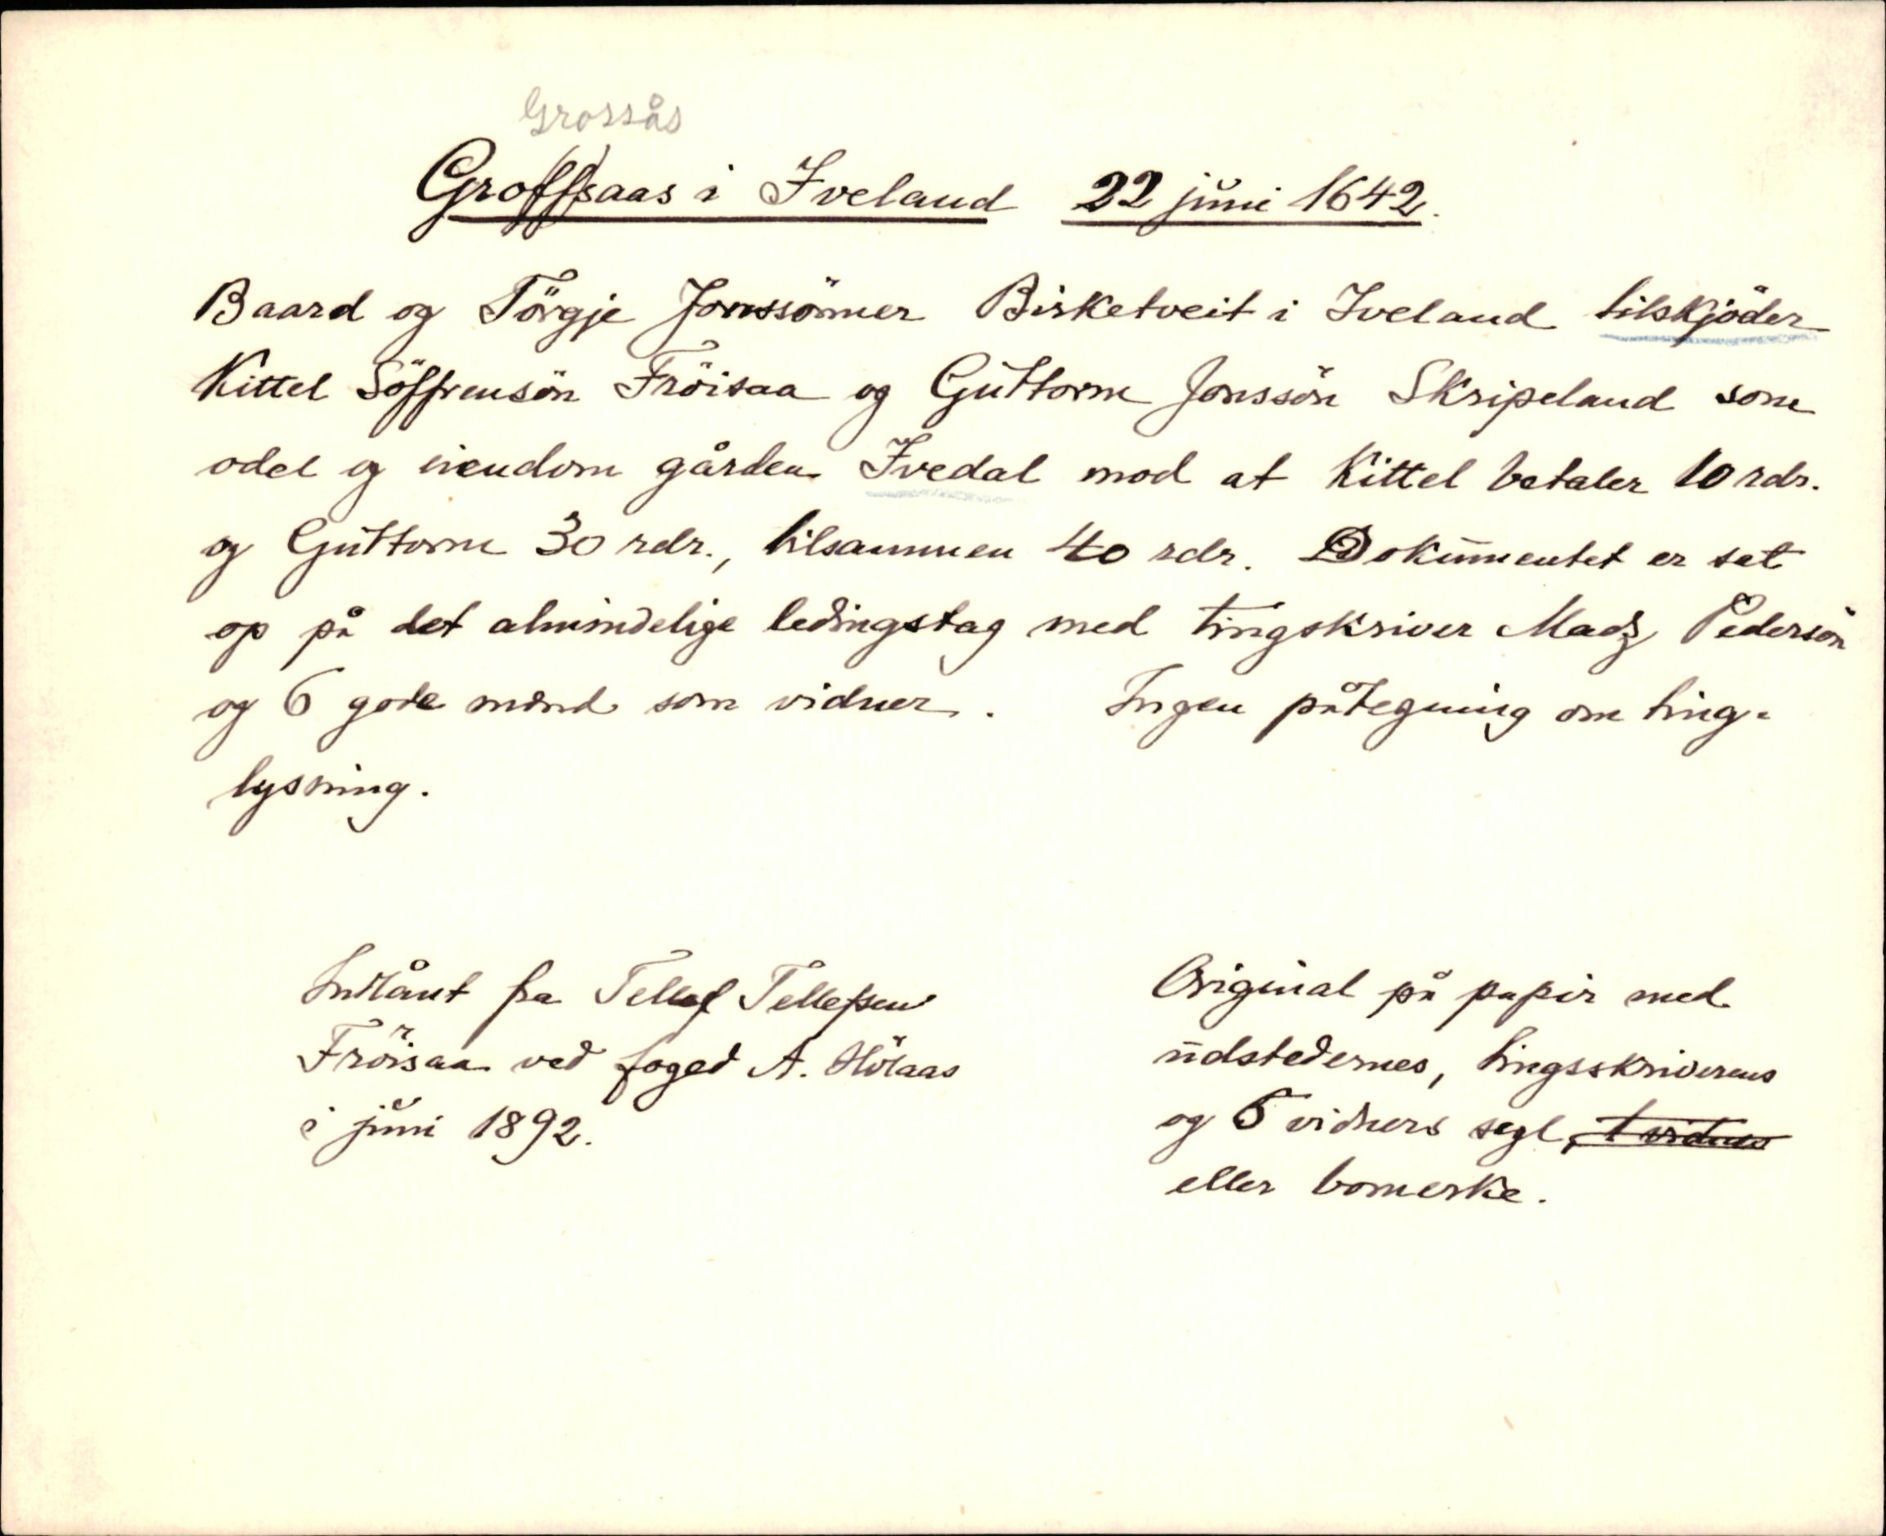 Grossås
Groffsaas i Iveland 22 juni 1642.
Baard og Törgje Jonssönner Birketveit i Iveland tilskjöder
Kittel Söffrensön Fröisaa og Guttorm Jonssön Skripeland som
odel og eiendom gården Ivedal mod at Kittel betaler 10 rdr.
og Guttorm 30 rdr., tilsammen 40 rdr. Dokumentet er sat
op på det almindelige ledingstag med tingskriver Madz Pedersön
og 6 gode mænd som vidner. Ingen påtegning om ting-
lysning.
Indlånt fra Tellef Tellefsen
Fröisaa ved foged A. Hölaas
i juni 1892.
Original på papir med
udstedernes, tingsskriverens
og 5 vidners segl, 1 vidnes
eller bomerke.